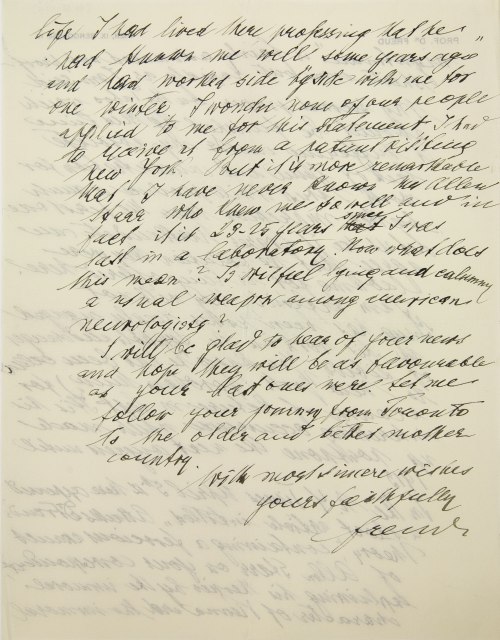 life I had lived there professing that he
had known me well some years ago
and had worked side by side with me for
one winter. I wonder none of our people
applied to me for this statement, I had
to receive it from a patient visiting
New York. But it is more remarkable
that I have never known Mr Allen
Starr who knew me so well and in
fact it is 23-25 years since I was
last in a laboratory. Now what does
this mean? Is wilful lying and calumny
a usual weapon among american
neurologists?
I will be glad to hear of your news
and hope they will be as favourable
as your last ones were. Let me
follow your journey from Toronto
to the older and better mother
country.
With most sincere wishes
yours faithfully
Freud